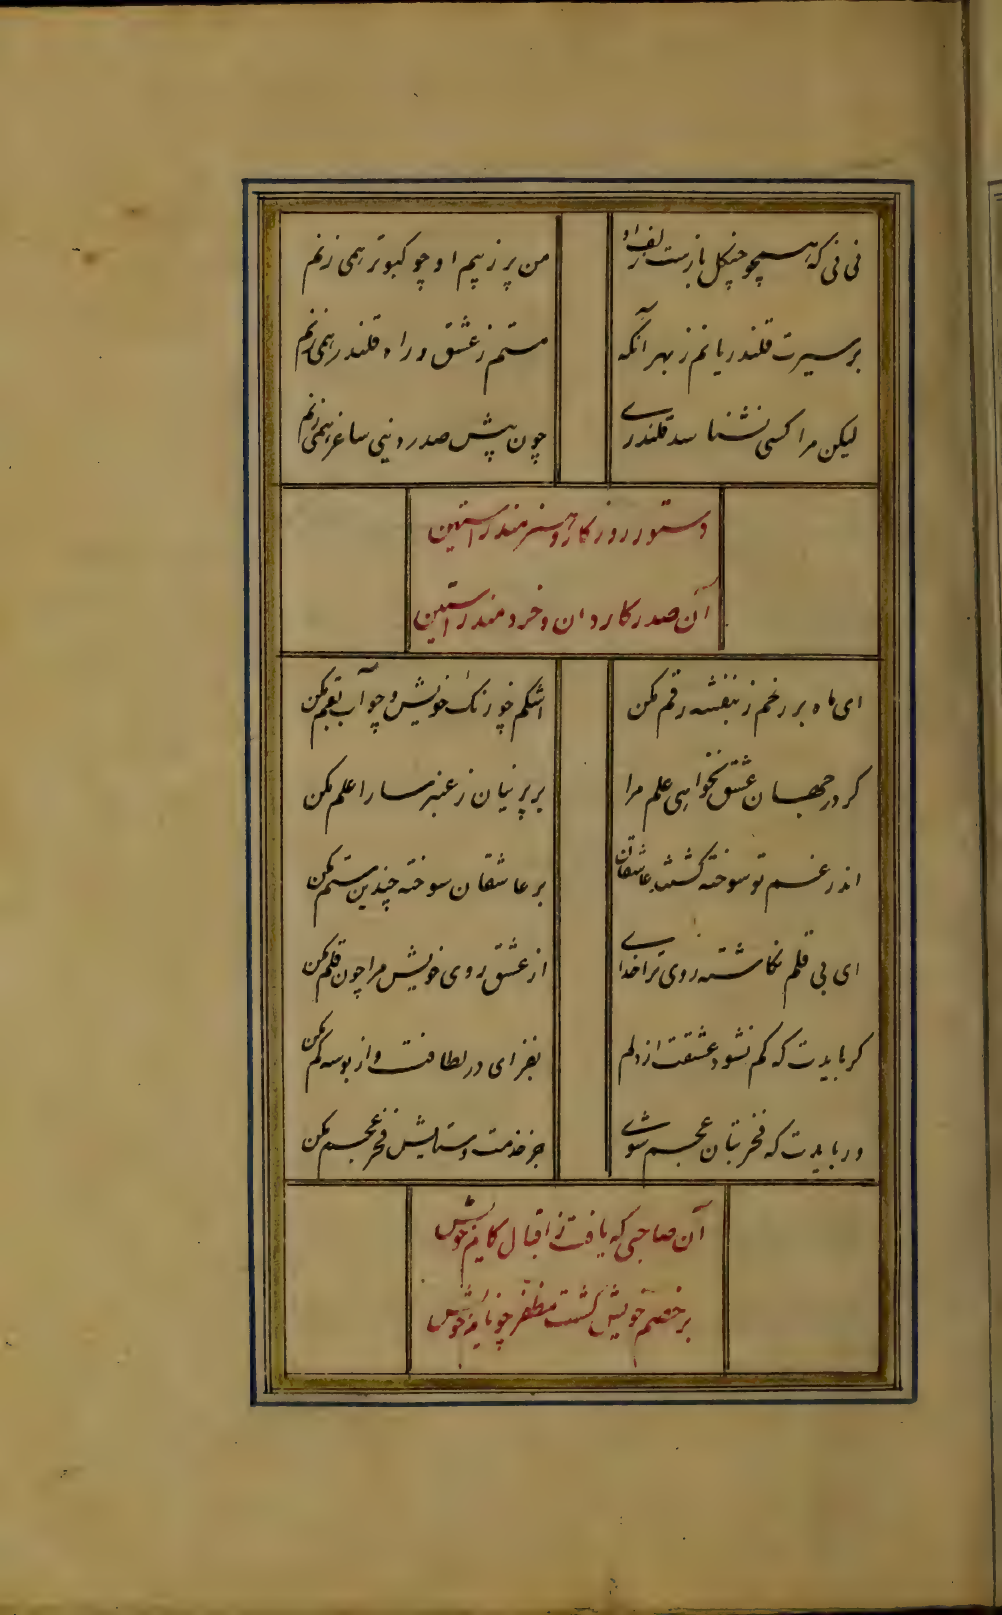 نی نی که همچو چنگل بازست زلف او
من پر ز بیم او چو کبوتر همی زنم
بر سیرت قلندریانم ز بهر آنکه
مستم ز عشق و راه قلندر همی زنم
لیکن مرا کسی نشناسد قلندری
چون پیش صدر دنیی ساغر همی زنم
دستور روزکار و هنرمند راستین
آن صدر کاردان و خردمند راستین
ای ماه بر رخم ز بنفشه رقم مکن
اشکم چو رنک خویش و چو آب بقم مکن
کر در جهان عشق نخواهی علم مرا
بر پرنیان ز عنبر سارا علم مکن
اندر غم تو سوخته کشتند عاشقان
بر عاشقان سوخته چندین ستم مکن
ای بی قلم نکاشته روی ترا خدای
از عشق روی خویش مرا چون قلم مکن
کر بایدت که کم نشود عشقت از دلم
بفزای در لطافت و از بوسه کم مکن
ور بایدت که فخر بتان عجم شوی
جز خدمت و ستایش فخر عجم مکن
آن صاحبی که یافت ز اقبال کام خویش
بر خصم خویش کشت مظفر چو نام خویش